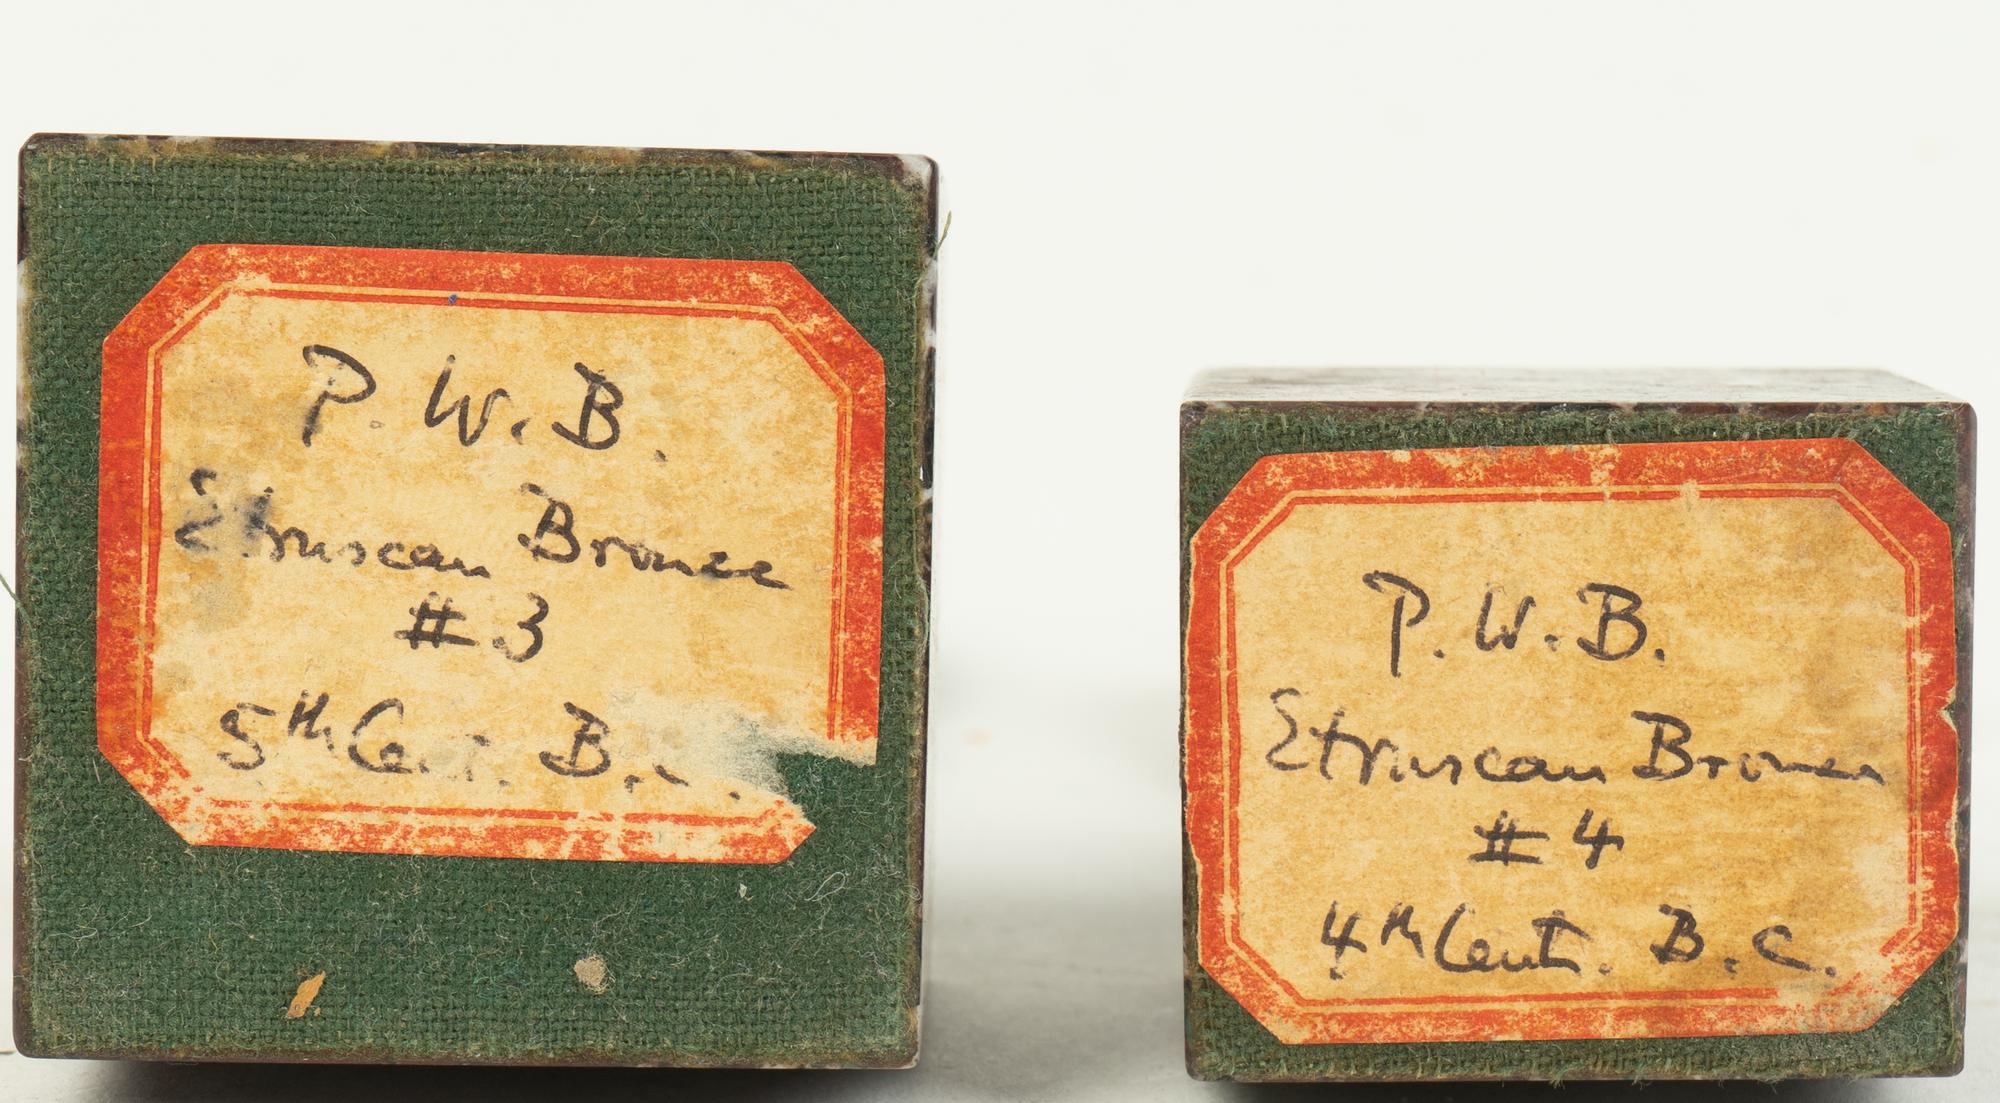 P. W. B.
Etruscan Bronze
#3
5th Cent. B.C.
P. W. B.
Etruscan Bronze
#4
4th Cent. B.C.